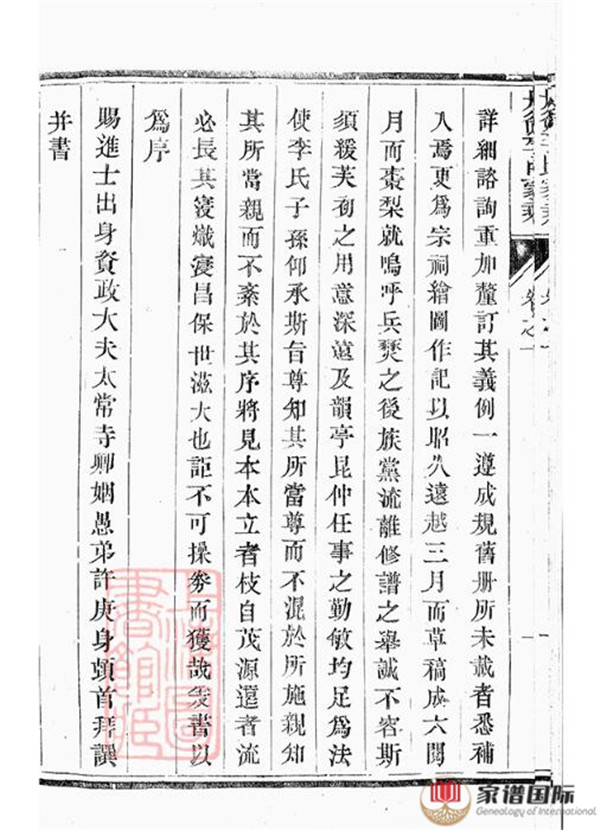 李氏家乘
卷之一
一
詳細諮詢重加釐訂其義例一遵成規舊册所未載者悉補
入焉更爲宗祠繪圖作記以昭久遠越三月而草稿成六閱
月而棗梨就嗚呼兵燹之後族黨流離修譜之舉誠不容斯
須緩芙初之用意深遠及韻亭昆仲任事之勤敏均足爲法
使李氏子孫仰承斯旨尊知其所當尊而不混於所施親知
其所當親而不紊於其序將見本本立者枝自茂源遠者流
必長其寖熾寖昌保世滋大也詎不可操券而獲哉爰書以
爲序
賜進士出身資政大夫太常寺卿姻愚弟許庚身頓首拜譔
并書
上海圖
書館藏
家谱国际
Genealogy of International